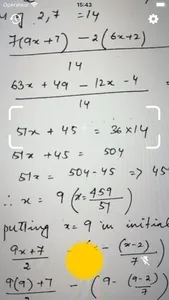 15:43
of 2,7 = 14
7(9x+7) - 2(6x+2)
14
63x + 49 - 12x - 4
14
51x + 45 = 36×14
51x + 45 = 504
51x = 504-45 => 45
∴ x = 9 (x = 459/51)
putting x = 9 in initial
9x+7 / 2 - ( - (x-2)/7
9(9)+7 / 2 - (9 - (9-2)/7